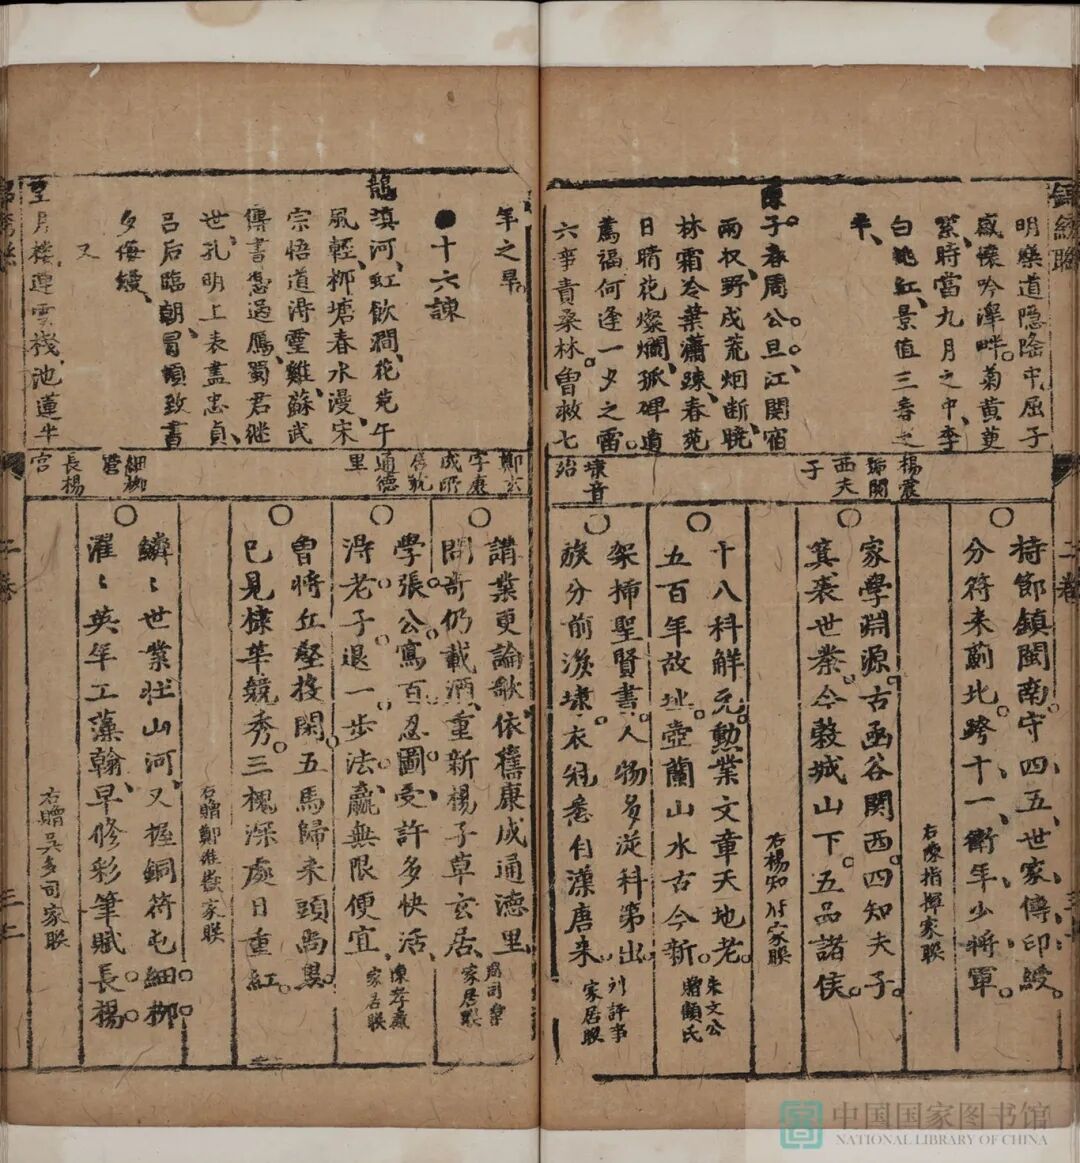 錦繡聯
明樂道隱隆中屈子
感懷吟澤畔菊黃萸
紫時當九月之中李
白桃紅景值三春之
半
陳子春周公旦江関宿
兩权野戍荒烟断曉
林霜冷葉瀟踈春苑
日晴花燦爛孤碑遺
薦福何逢一夕之雷
六事責桑林曾救七
楊震
歸関
西夫
子
壊音
治
二卷
持節鎮閩南守四五世家傳印綬
分符来薊北跨十一衛年少將軍
右陳指揮家聯
家學淵源古函谷関西四知夫子
箕裘世業今敎城山下五品諸侯
右楊知州家聯
十八科解元勳業文章天地老
五百年故址壺蘭山水古今新
朱文公
贈顧氏
架挿聖賢書人物多從科第出
族分前後埭衣冠悉自漢唐来
刘評事
家居聯
年之旱
十六諫
龍滇河紅飲澗花莞午
風輕栁塘春水漫宋
宗悟道淂靈雞蘇武
傳書憑過鴈蜀君继
世孔明上表盡忠貞
吕后臨朝冒頓致書
多侮縵
又
星月樓連雲棧池蓮半
鄭玄
字康
成所
居號
通德
里
細栁
營
長楊
宮
講業更論歌依舊康成通德里
問竒仍載酒重新楊子草玄居
周司業
家居聯
學張公寫百忍圖受許多快活
淂老子退一步法贏無限便宜
陳孝廉
家居聯
曾將丘壑投閑五馬歸来頭尚黒
已見棣華競秀三槐深處日重紅
右贈鄭推嶽家聯
鱗〻世業壮山河又握銅符屯細栁
濯〻英年工藻翰早修彩筆賦長楊
右贈吳多司家聯
二卷
三十
中国国家图书馆
NATIONAL LIBRARY OF CHINA